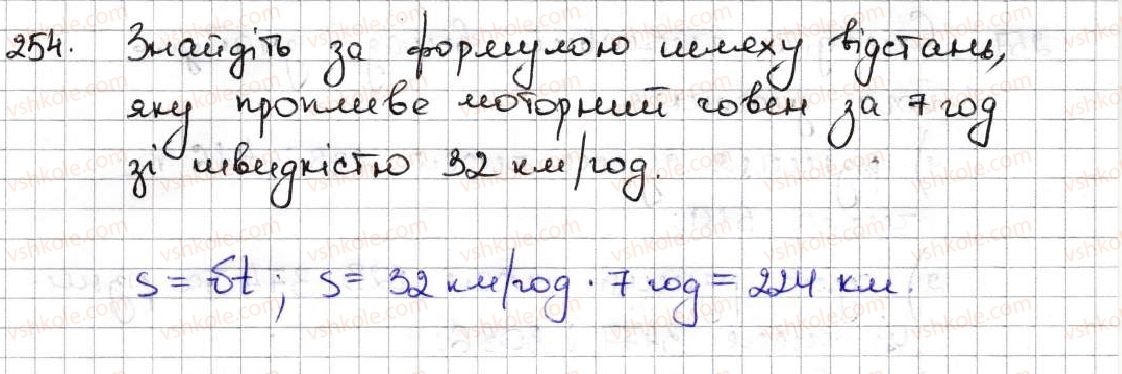 254. Знайдіть за формулою шляху відстань,
яку пропливе моторний човен за 7 год
зі швидкістю 32 км/год.
s = vt; s = 32 км/год · 7 год = 224 км.